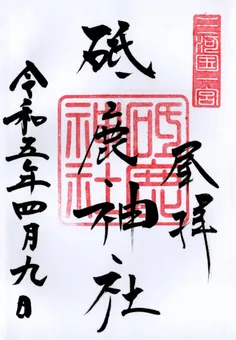 三河国一宮
奉拝
砥鹿神社
砥鹿神社
令和五年四月九日